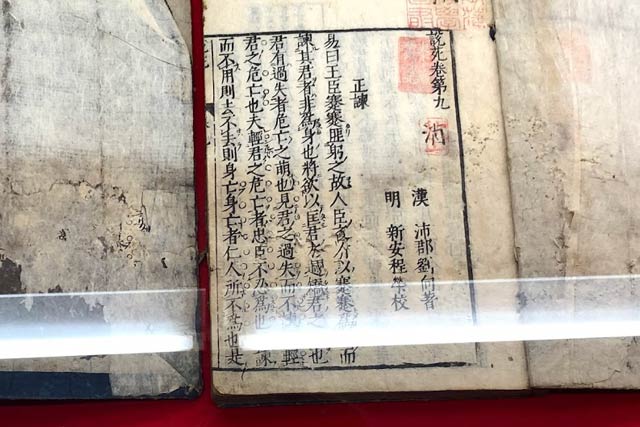 說苑卷第九
漢 沛郡劉向著
明 新安程榮校
正諫
易曰王臣蹇蹇匪躬之故人臣之所以蹇蹇為難而
諫其君者非為身也將欲以匡君之過矯君之失也
君有過失者危亡之萌也見君之過失而不諫是輕
君之危亡也夫輕君之危亡者忠臣不忍為也三諫
而不用則去不去則身亡身亡者仁人所不為也是